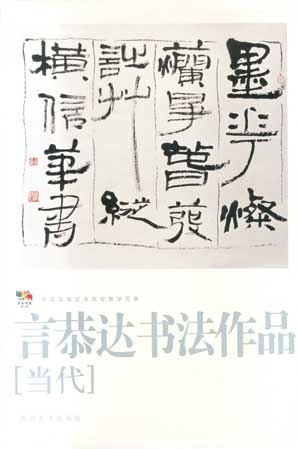 墨华燦
爛發
艸縱
橫信筆書
中国高等艺术院校教学范本
言恭达书法作品
[当代]